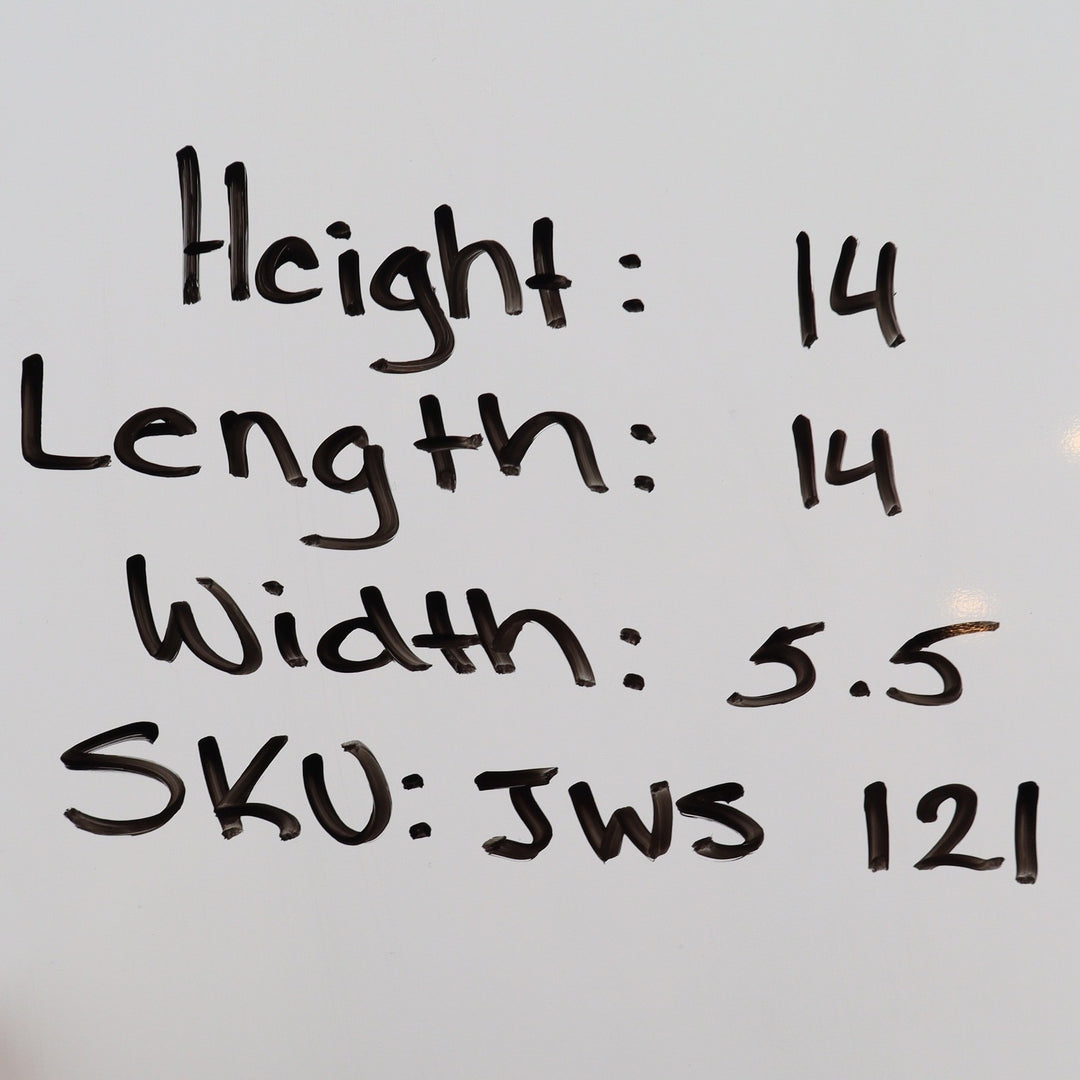 Height: 14
Length: 14
Width: 5.5
SKU: JWS 121